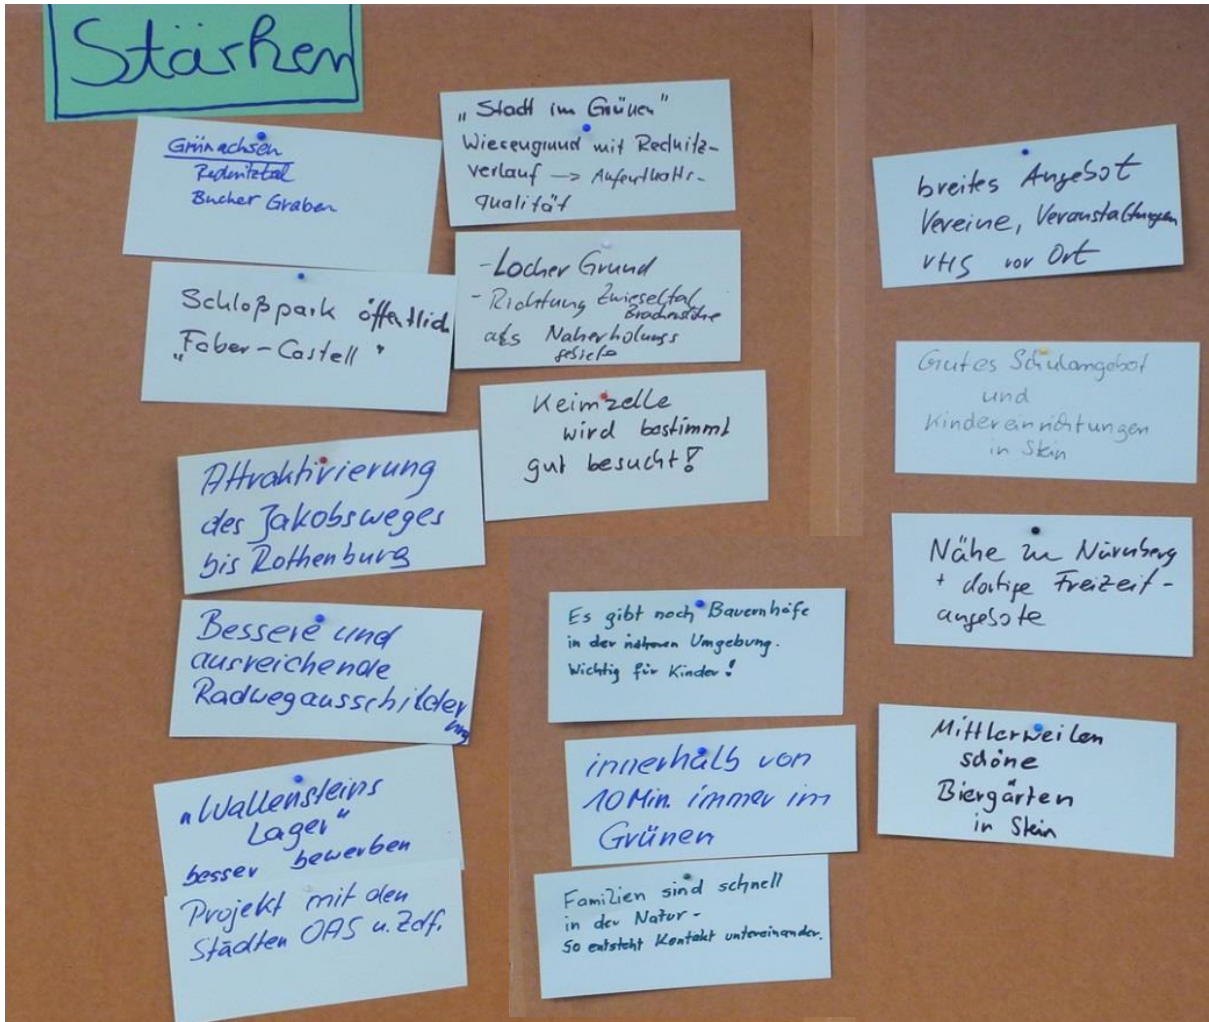 Stärken
Grünachsen
Rednitztal
Bucher Graben
Schloßpark öffentlich
"Faber-Castell"
Attraktivierung
des Jakobsweges
bis Rothenburg
Bessere und
ausreichende
Radwegausschilder
ung
"Wallensteins
Lager"
besser bewerben
Projekt mit den
Städten OAS u. Zdf.
"Stadt im Grünen"
Wiesengrund mit Rednitz-
verlauf -> Aufenthalts-
qualität
- Locher Grund
- Richtung Zwieseltal
als Naherholungs
gebiete
Keimzelle
wird bestimmt
gut besucht!
Es gibt noch Bauernhöfe
in der näheren Umgebung.
Wichtig für Kinder!
innerhalb von
10 Min. immer im
Grünen
Familien sind schnell
in der Natur -
So entsteht Kontakt untereinander.
breites Angebot
Vereine, Veranstaltungen
VHS vor Ort
Gutes Schulangebot
und
Kindereinrichtungen
in Stein
Nähe zu Nürnberg
+ dortige Freizeit-
angebote
Mittlerweilen
schöne
Biergärten
in Stein